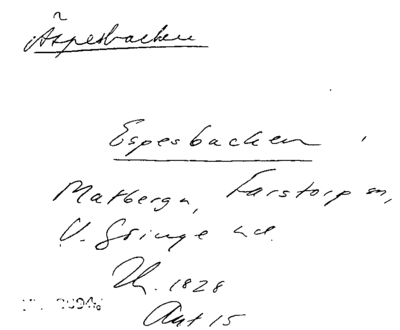 Äspesbacken
Espesbacken
Matberga, Farstorp sn,
V. Göinge hd.
1828
Akt 15